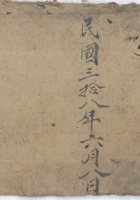 民國三拾八年六月八日